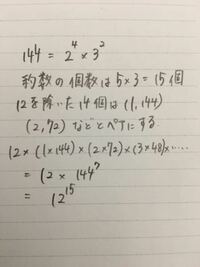 144 = 2⁴ × 3²
約数の個数は 5×3 = 15個
12を除いた14個は (1, 144)
(2, 72) などとペアにする
12×(1×144)×(2×72)×(3×48)×‥‥
= 12 × 144⁷
= 12¹⁵